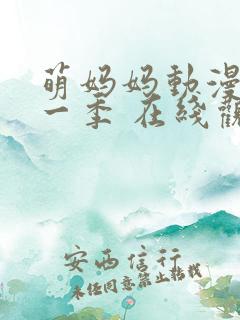 萌妈妈動漫
一季 在线觀
安西信行
未任同意禁止轉載